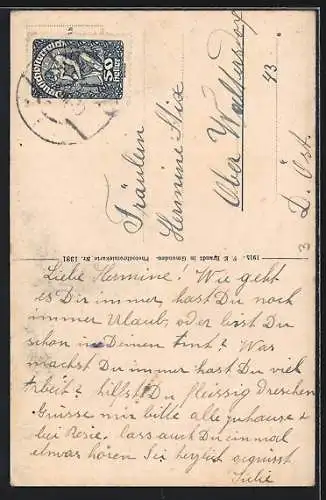 Deutschösterreich
50
Heller
Fräulein
Hermine Hix
Ober Waltersdorf
43
D. Öst.
3
1915. F. E. Brandt in Gmunden. Photobromidekarte Nr. 1391
Liebe Hermine! Wie geht
es Dir immer, hast Du noch
immer Urlaub, oder bist Du
schon in Deinem Amt? Was
machst Du immer hast Du viel
Arbeit? hilfst Du fleissig dreschen
Grüsse mir bitte alle zuhause &
bei Resie. lass auch Du einmal
etwas hören Sei herzlich gegrüsst